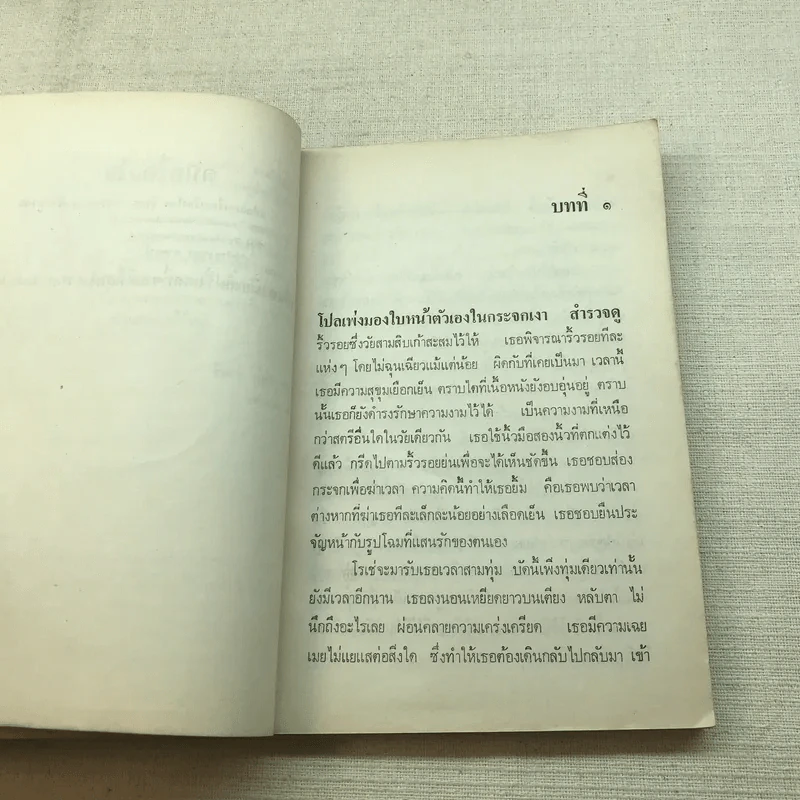 บทที่ ๑
โปลเพ่งมองใบหน้าตัวเองในกระจกเงา สำรวจดู
ริ้วรอยซึ่งวัยสามสิบเก้าสะสมไว้ให้ เธอพิจารณาริ้วรอยทีละ
แห่งๆ โดยไม่ฉุนเฉียวแม้แต่น้อย ผิดกับที่เคยเป็นมา เวลานี้
เธอมีความสุขุมเยือกเย็น ตราบใดที่เนื้อหนังยังอบอุ่นอยู่ ตราบ
นั้นเธอก็ยังดำรงรักษาความงามไว้ได้ เป็นความงามที่เหนือ
กว่าสตรีอื่นใดในวัยเดียวกัน เธอใช้นิ้วมือสองนิ้วที่ตกแต่งไว้
ดีแล้ว กรีดไปตามริ้วรอยย่นเพื่อจะได้เห็นชัดขึ้น เธอชอบส่อง
กระจกเพื่อฆ่าเวลา ความคิดนี้ทำให้เธอยิ้ม คือเธอพบว่าเวลา
ต่างหากที่ฆ่าเธอทีละเล็กละน้อยอย่างเลือดเย็น เธอชอบยืนประ
จัญหน้ากับรูปโฉมที่แสนรักของตนเอง
โรเช่จะมารับเธอเวลาสามทุ่ม บัดนี้เพิ่งทุ่มเดียวเท่านั้น
ยังมีเวลาอีกนาน เธอลงนอนเหยียดยาวบนเตียง หลับตา ไม่
นึกถึงอะไรเลย ผ่อนคลายความเคร่งเครียด เธอมีความเฉย
เมยไม่แยแสต่อสิ่งใด ซึ่งทำให้เธอต้องเดินกลับไปกลับมา เข้า